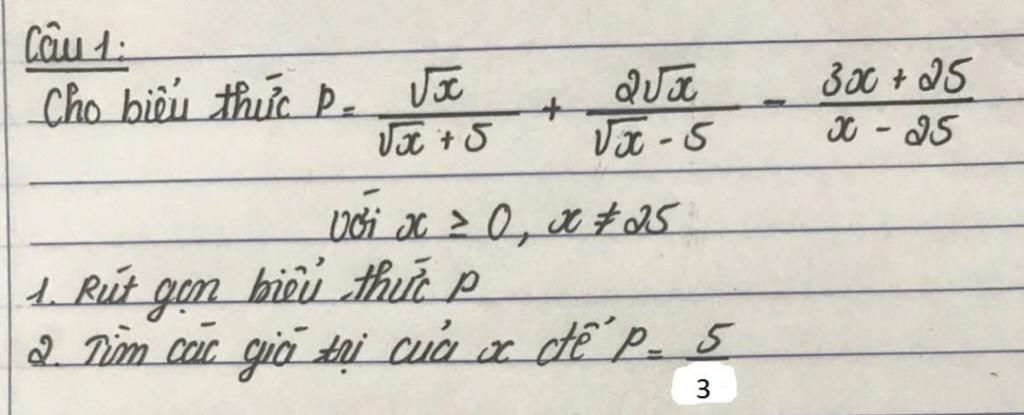 Câu 1:
Cho biểu thức P = √x / (√x + 5) + 2√x / (√x - 5) - (3x + 25) / (x - 25)
với x ≥ 0, x ≠ 25
1. Rút gọn biểu thức P
2. Tìm các giá trị của x để P = 5 / 3